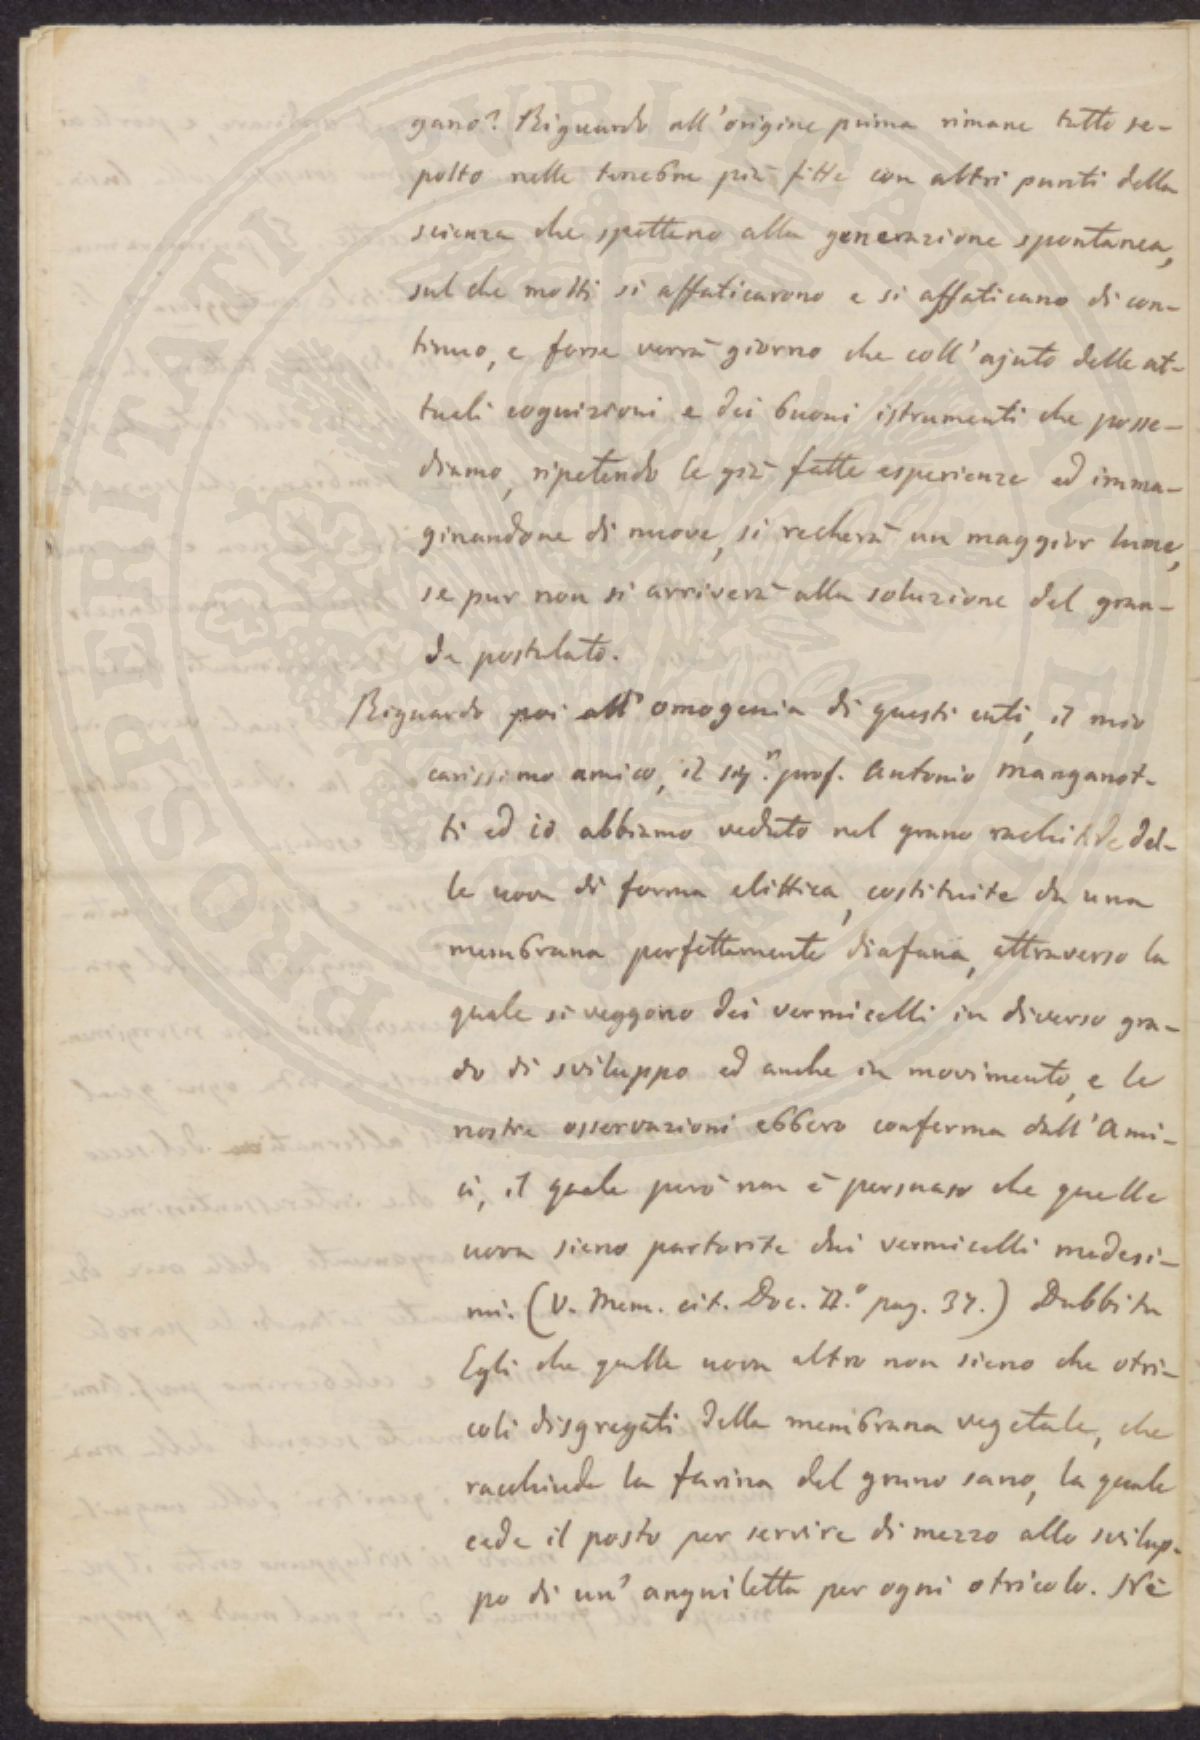 gano? Riguardo all'origine prima rimane tutto se-
polto nelle tenebre più fitte con altri punti della
scienza che spettano alla generazione spontanea,
sul che molti si affaticarono e si affaticano di con-
tinuo, e forse verrà giorno che coll'ajuto delle at-
tuali cognizioni e dei buoni istrumenti che posse-
diamo, ripetendo le già fatte esperienze ed imma-
ginandone di nuove, si recherà un maggior lume,
se pur non si arriverà alla soluzione del gran-
de postulato.
Riguardo poi all'omogenia di questi enti, il mio
carissimo amico, il sig.r prof. Antonio Manganot-
ti ed io abbiamo veduto nel grano rachitide del-
le uova di forma elittica, costituite da una
membrana perfettamente diafana, attraverso la
quale si veggono dei vermicelli in diverso gra-
do di sviluppo ed anche in movimento, e le
nostre osservazioni ebbero conferma dall'Ami-
ci, il quale però non è persuaso che quelle
uova sieno partorite dai vermicelli medesi-
mi. (V. Mem. cit. Doc. II.º pag. 37.) Dubbita
Egli che quelle uova altro non sieno che otri-
coli disgregati della membrana vegetale, che
racchiude la farina del grano sano, la quale
cede il posto per servire di mezzo allo svilup-
po di un' anguiletta per ogni otricolo. Nè
PROSPERITATI PUBLICAE AUGENDAE